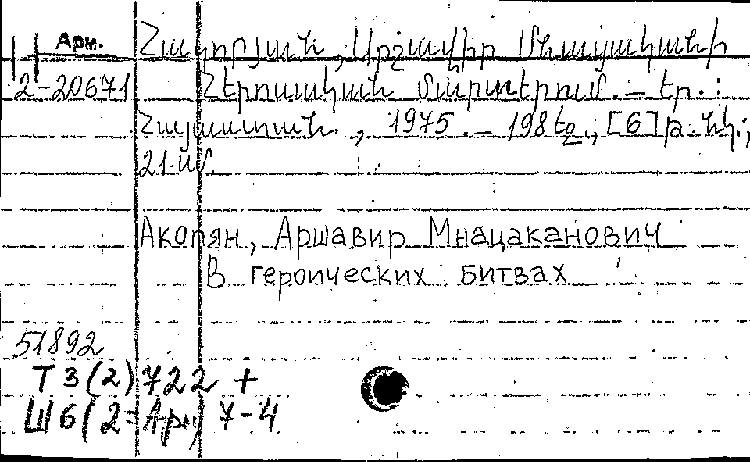 Арм. Հակոբյան, Արշավիր Մնացականի
2-20671 Հերոսական մարտերում. – Եր. :
Հայաստան, 1975. – 198 էջ, [6] թ. նկ.;
21 սմ.
Акопян, Аршавир Мнацаканович
В героических битвах
51892
Т3(2)722 +
Ш6(2=Арм)7-4